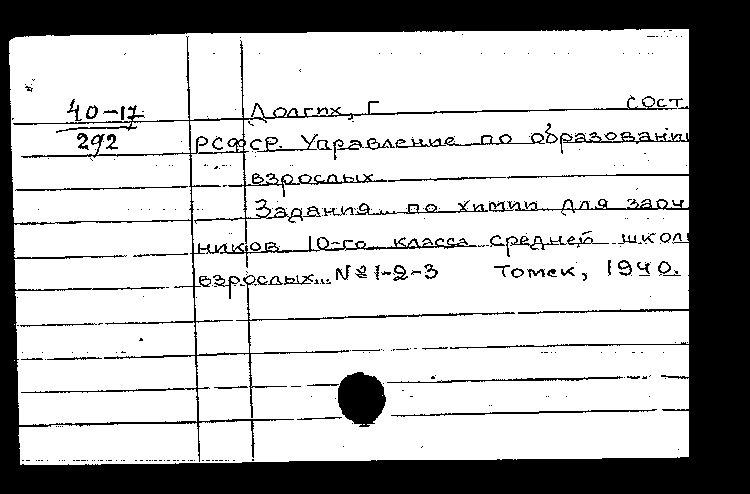 40-17
292
Долгих, Г сост.
РСФСР. Управление по образовани
взрослых
Задания... по химии для заоч
ников 10-го класса средней школ
взрослых... №№ 1-2-3 Томск, 1940.